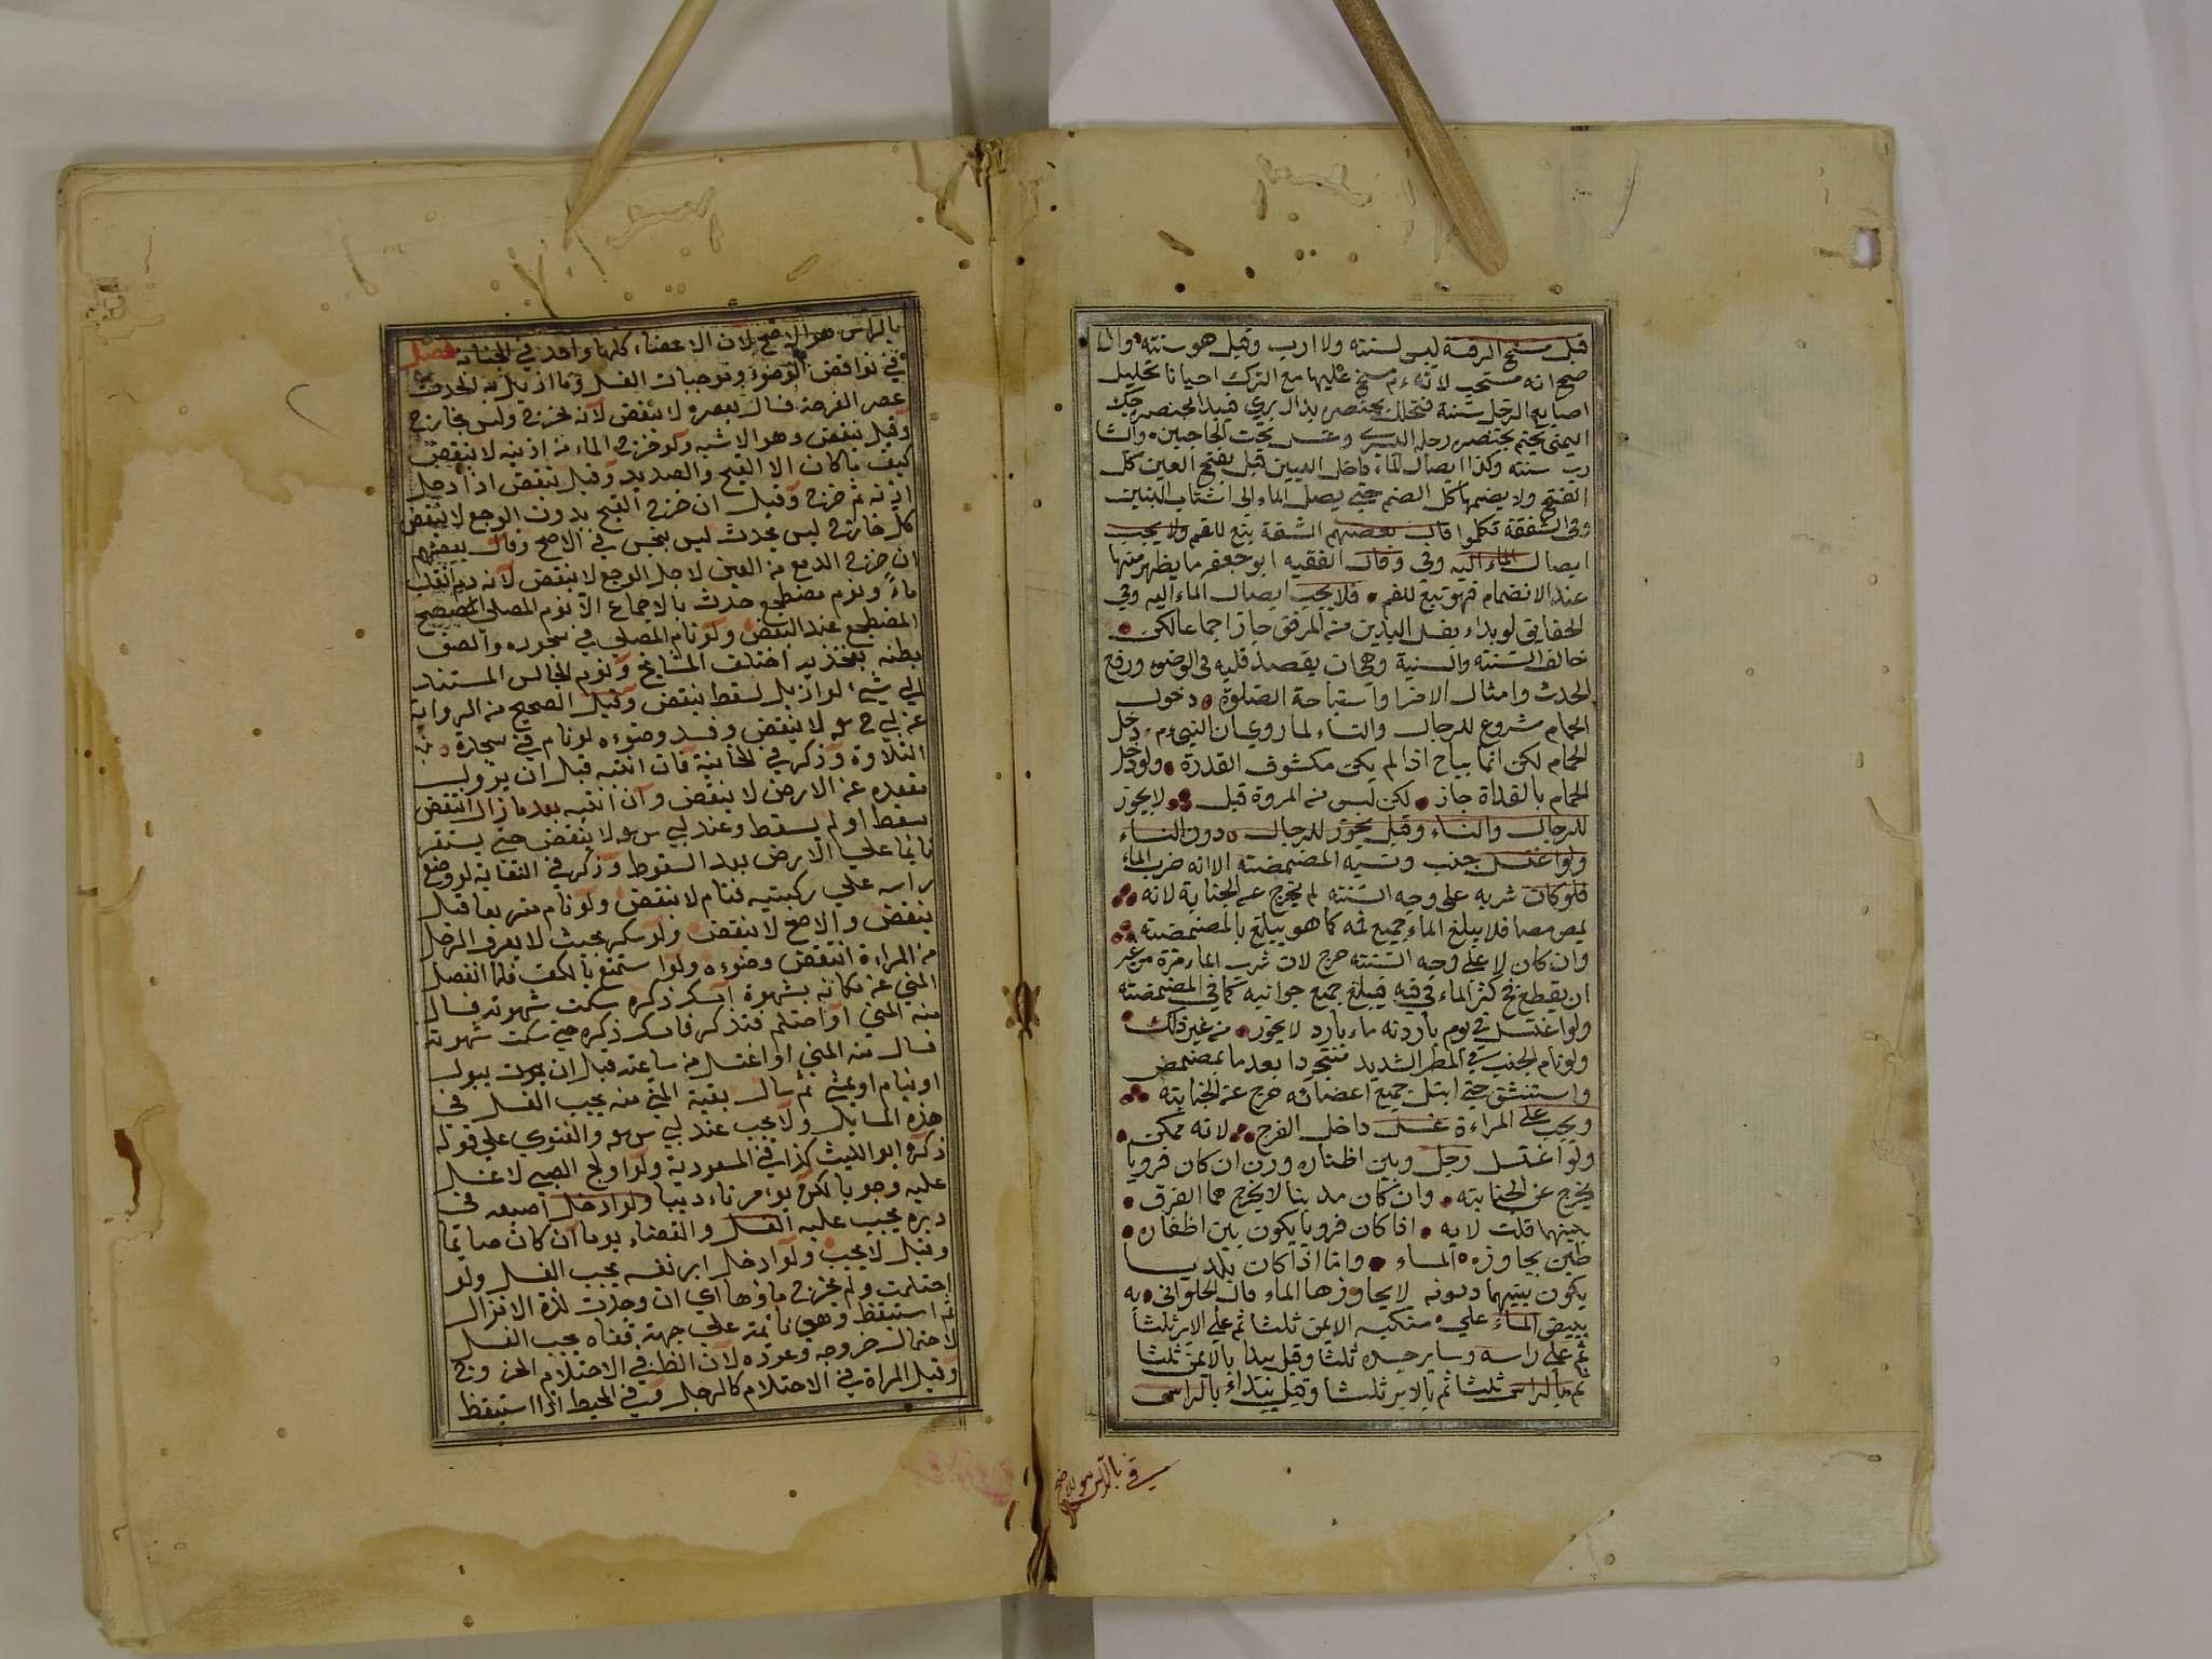 قيل مسح الرقبة ليس لسنته ولا ارب وقيل هو سنته وال
صح انه مستحب لانه ءم مسح عليها مع الترك احيانا تخليل
اصابع الرجل سنة فتخلل بخنصر يد اليسرى فيبدا بخنصر رجله
اليمنى يختم بخنصر رجله اليسرى وغسل تحت الحاجبين والشا
رب سنته وكذا ايصال الماء داخل العينين قيل يفتح العين كل
الفتح ولا يضمها كل الضم حتى يصل الماء الى اشتاب
وفي الشفقة تكلموا قال بعضهم الشفة يتبع للفم ولا يجب
ايصال الماء اليه وفي وقال الفقيه ابو جعفر ما يظهر منها
عند الانضمام فهو تبع للفم فلا يجب ايصال الماء اليه وفي
الحقايق لو بداء بغسل اليدين من المرفق جاز اجماعا لكن
خالف السنته والسنية وهي ان يقصد قلبه في الوضوء ورفع
الحدث وامثال الامرا واستباحة الصلوة دخول
الحمام مشروع للرجال والنساء لما روي ان النبي ءم دخل
الحمام لكن انما يباح اذا لم يكن مكشوف القدرة ولو دخل
الحمام بالغداة جاز لكن ليس من المروة قبل لا يجوز
للرجال والنساء وقيل يجوز للرجال دون النساء
ولو اغتسل جنب ونسيه المضمضته الا انه ضرب الماء
فلو كان شربه على وجه السنته لم يخرج عن الجنابة لانه
يمص مصا فلا يبلغ الماء جميع فمه كما هو يبلغ بالمضمضته
وان كان لا على وجه السنته خرج لان شرب الماء مرة من غير
ان يقطع نح كثر الماء في فيه فيبلغ جميع جوانبه كما في المضمضته
ولو اغتسل في يوم باردته ماء بارد لا يجوز من غير ذلك
ولو نام الجنب في المطر الشديد متجردا بعد ما تمضمض
واستنشق حتى ابتل جميع اعضائه خرج عن الجنابته
ويجب على المراءة غسل داخل الفرج لانه ممكن
ولو اغتسل رجل وبين اظفاره درن ان كان قرويا
يخرج عن الجنابته وان كان مدينا لا يخرج فما الفرق
بينهما قلت لابه اذا كان قرويا يكون بين اظفاره
طين يجاوزه الماء واما اذا كان بلديا
يكون بينهما دسونه لا يجاوزها الماء قال الحلواني به
يبيض الماء على منكبه الايمن ثلثا ثم على الايسر ثلثا
ثم على راسه وساير جسده ثلثا وقيل يبدا بالايمن ثلثا
ثم بالراس ثلثا ثم بالايسر ثلثا وقيل يبتداء بالراس
بالراس هو الاصح
بالراس هو الاصح لان الاعضاء كلها واحد في الجنابة فصل
في نواقض الوضوء وموجبات الغسل وما ازيل به الحدث
عصر القرحة فسال بعصره لا ينقض لانه مخرج وليس بخارج
وقيل ينقض وهو الاشبه ولو خرج الماء من اذنيه لا ينقض
كيف ما كان الا القيح والصديد وقيل ينقض اذا دخل
اذنه ثم خرج وقيل ان خرج القيح بدون الوجع لا ينقض
كل خارج ليس بحدث ليس بنجس في الاصح وقال بعضهم
ان خرج الدمع من العين لاجل الوجع لا ينقض لانه دم انقلب
ماءً ونوم مضطجع حدث بالاجماع الا نوم المصلي الصحيح
المضطجع عند البعض ولو نام المصلي في سجوده والصق
بطنه بفخذيه اختلف المشايخ ونوم الجالس المستند
الي شيء لو ازيل لسقط ينقض وقيل الصحيح من الرواية
عن ابي ح رحه لا ينقض وفسد وضوءه لو نام في سجدة
التلاوة وذكر في الخانية فان انتبه قبل ان يزول
مقعده عن الارض لا ينقض وان انتبه بعد ما زال انتقض
سقط او لم يسقط وعند ابي س رحه لا ينقض حتى يستقر
نائما على الارض بعد السقوط وذكر في النقاية لو وضع
راسه على ركبتيه فنام لا ينقض ولو نام متربعا قيل
ينقض والاصح لا ينقض ولو سكر بحيث لا يعرف الرجل
من المراءة انتقض وضوءه ولو استمنع بالكف فلما انفصل
المني عن مكانه بشهوة امسك ذكره سكت شهوته فسال
منه المني او احتلم فتذكر فامسك ذكره حتى سكت شهوته
فسال منه المني او اغتسل من ساعته قبل ان يموت ببول
او ينام او يمشي ثم سال بقية المني منه يجب الغسل في
هذه المسايل ولا يجب عند ابي س رحه والفتوى على قوله
ذكره ابو الليث كذا في المسعودية ولو اولج الصبي لا غسل
عليه وجوبا لكن يومر تاءديبا ولو ادخل اصبعه في
دبره يجب عليه الغسل والقضاء يوما ان كان صائما
وقيل لا يجب ولو ادخل اير نفسه يجب الغسل ولو
احتلمت ولم يخرج ماؤها اي ان وجدت لذة الانزال
ثم استيقظ وهي نائمة على جهته قفاه يجب الغسل
لاحتمال خروجه وعوده لان الظن في الاحتلام الخروج
وقيل المراة في الاحتلام كالرجل وفي المحيط اذا استيقظ